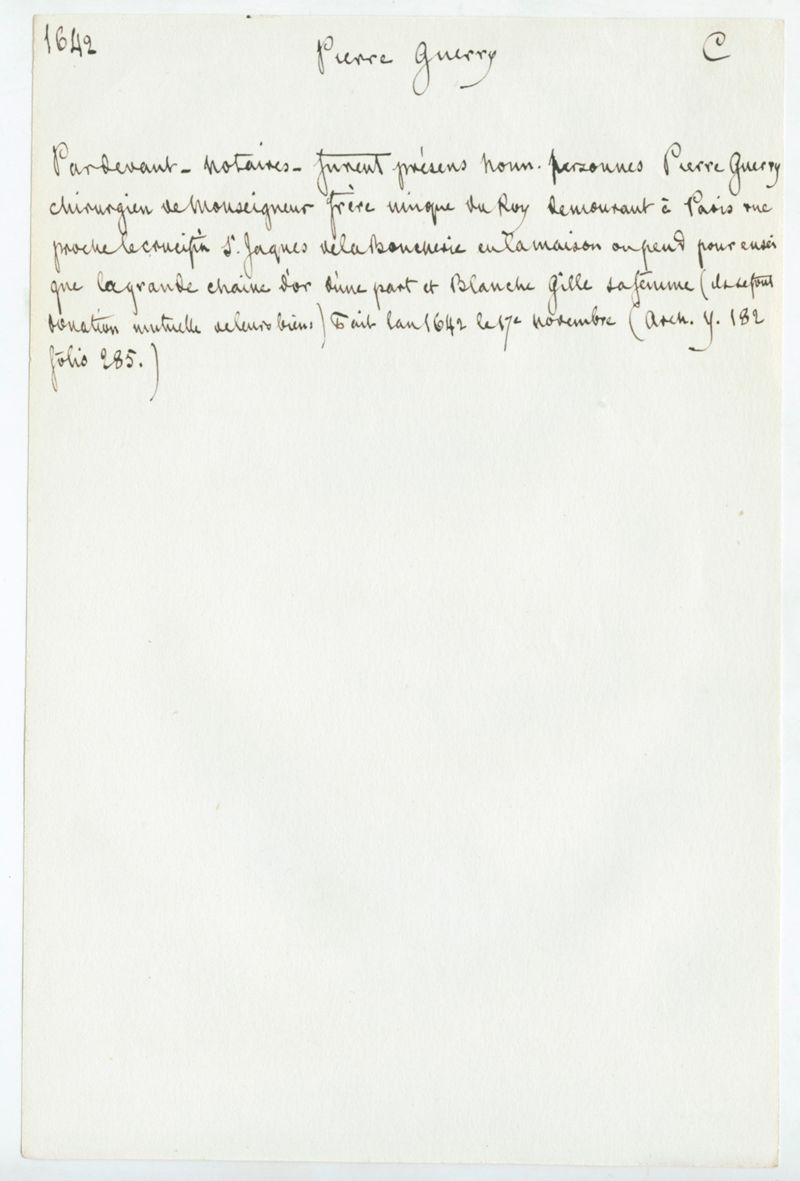 1642 Pierre Guerry C
Pardevant - notaires - furent présens honn. personnes Pierre Guerry
chirurgien de Monseigneur frère unique du Roy demourant à Paris rue
proche le crucifix St. Jaques de la Boucherie en la maison ou pend pour ensei
gne la grande chaine d'or d'une part et Blanche Gille sa femme (ils se font
donation mutuelle de leurs biens) Fait lan 1642 le 17e novembre (Arch. y. 182
folio 285.)